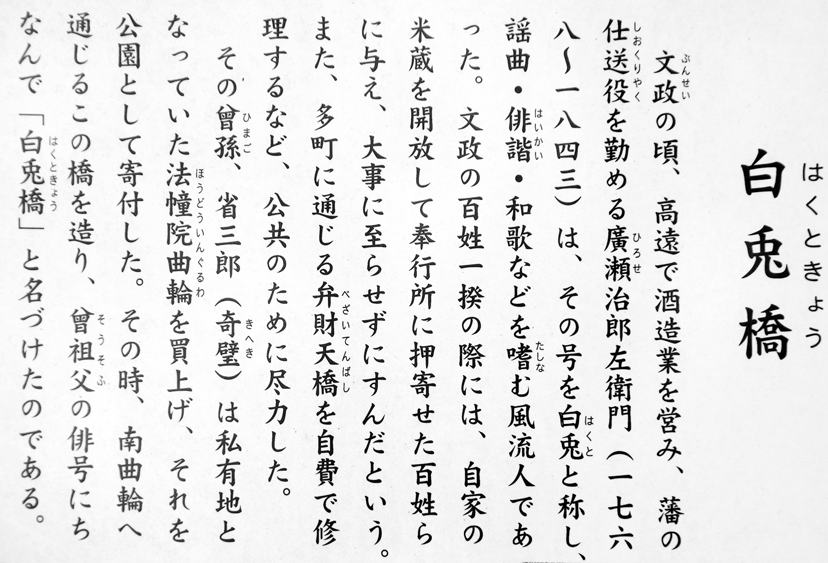 白兎橋
はくときょう
文政の頃、高遠で酒造業を営み、藩の
ぶんせい
仕送役を勤める廣瀬治郎左衛門（一七六
しおくりやく
ひろせ
八〜一八四三）は、その号を白兎と称し、
はくと
謡曲・俳諧・和歌などを嗜む風流人であ
はいかい
たしな
った。文政の百姓一揆の際には、自家の
米蔵を開放して奉行所に押寄せた百姓ら
に与え、大事に至らせずにすんだという。
また、多町に通じる弁財天橋を自費で修
べざいてんばし
理するなど、公共のために尽力した。
その曾孫、省三郎（奇璧）は私有地と
ひまご
きへき
なっていた法幢院曲輪を買上げ、それを
ほうどういんぐるわ
公園として寄付した。その時、南曲輪へ
通じるこの橋を造り、曾祖父の俳号にち
そうそふ
なんで「白兎橋」と名づけたのである。
はくときょう